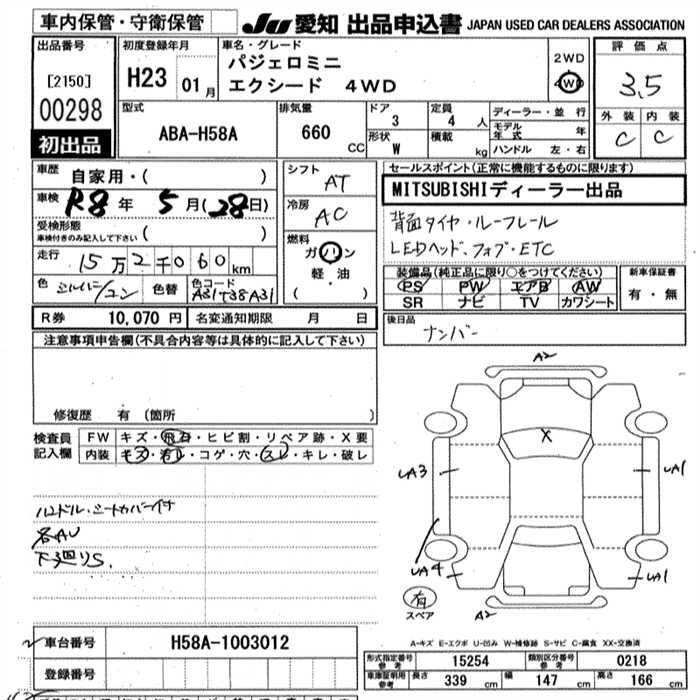 車内保管・守衛保管
JU 愛知 出品申込書 JAPAN USED CAR DEALERS ASSOCIATION
出品番号
[2150]
00298
初出品
初度登録年月
H23 01月
車名・グレード
パジェロミニ
エクシード 4WD
2WD
4WD
評価点
3.5
外装 内装
C C
型式
ABA-H58A
排気量
660 CC
ドア
3
定員
4 人
形状
W
積載
kg
ディーラー・並行
モデル年式 年
ハンドル 左・右
車歴
自家用・( )
車検
R8年 5月(28日)
受検形態
車検付きのみ記入して下さい ( )
走行
15万2千060km
色
シルバー/コン
色替
色コード
A31T38A31
シフト
AT
冷房
AC
燃料
ガソリン
軽・油
( )
セールスポイント(正常に機能するものに限ります)
MITSUBISHIディーラー出品
背面タイヤ・ルーフレール
LEDヘッド、フォブ・ETC
装備品(純正品に限り○をつけてください)
PS PW エアB AW
SR ナビ TV カワシート
新車保証書
有・無
R券 10,070円 名変通知期限 月 日
後日品
ナンバー
注意事項申告欄(不具合内容等は具体的に記入して下さい)
修復歴 有(箇所 )
検査員記入欄
FW キズ・飛石・ヒビ割・リペア跡・X要
内装 キズ・汚レ・コゲ・穴・スレ・キレ・破レ
ハンドル・シートカバー付
各AU
下廻りS.
A2
X
UA3
UA1
UA4
UA1
有
スペア
A2
A-キズ E-エクボ U-凹み W-補修跡 S-サビ C-腐食 XX-交換済
車台番号
H58A-1003012
登録番号
型式指定番号参考 15254 類別区分番号参考 0218
車庫証明用参考 長さ 339 cm 幅 147 cm 高さ 166 cm